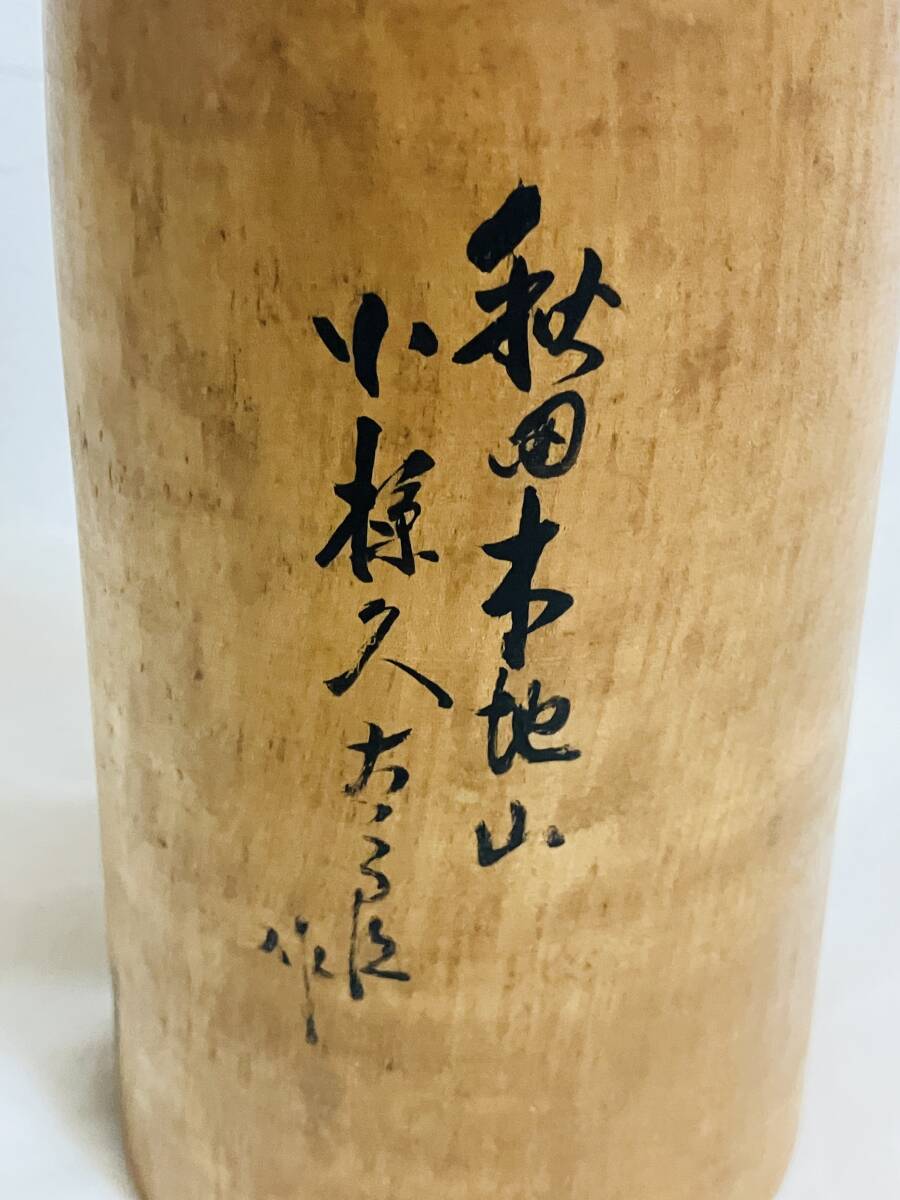 秋田木地山
小椋久太郎
作